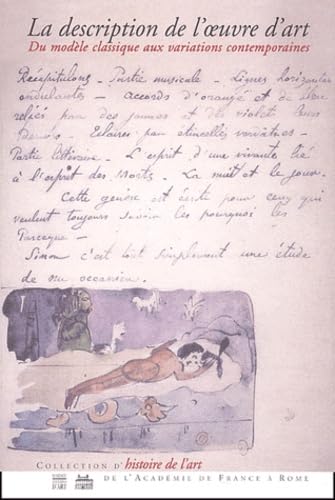 La description de l'œuvre d'art
Du modèle classique aux variations contemporaines
Récapitulons - Partie musicale - Lignes horizontales
ondulantes - accords d'orangé et de bleu
reliés par des jaunes et des violets leurs
Eclairés par étincelles verdâtres -
Partie littéraire - L'esprit d'une vivante lié
à l'esprit des Morts. - La nuit et le jour.
Cette genèse est écrite pour ceux qui
veulent toujours savoir les pourquoi les
Parceque -
Sinon c'est tout simplement une étude
de nu océanien.
COLLECTION D'histoire de l'art
DE L'ACADÉMIE DE FRANCE À ROME